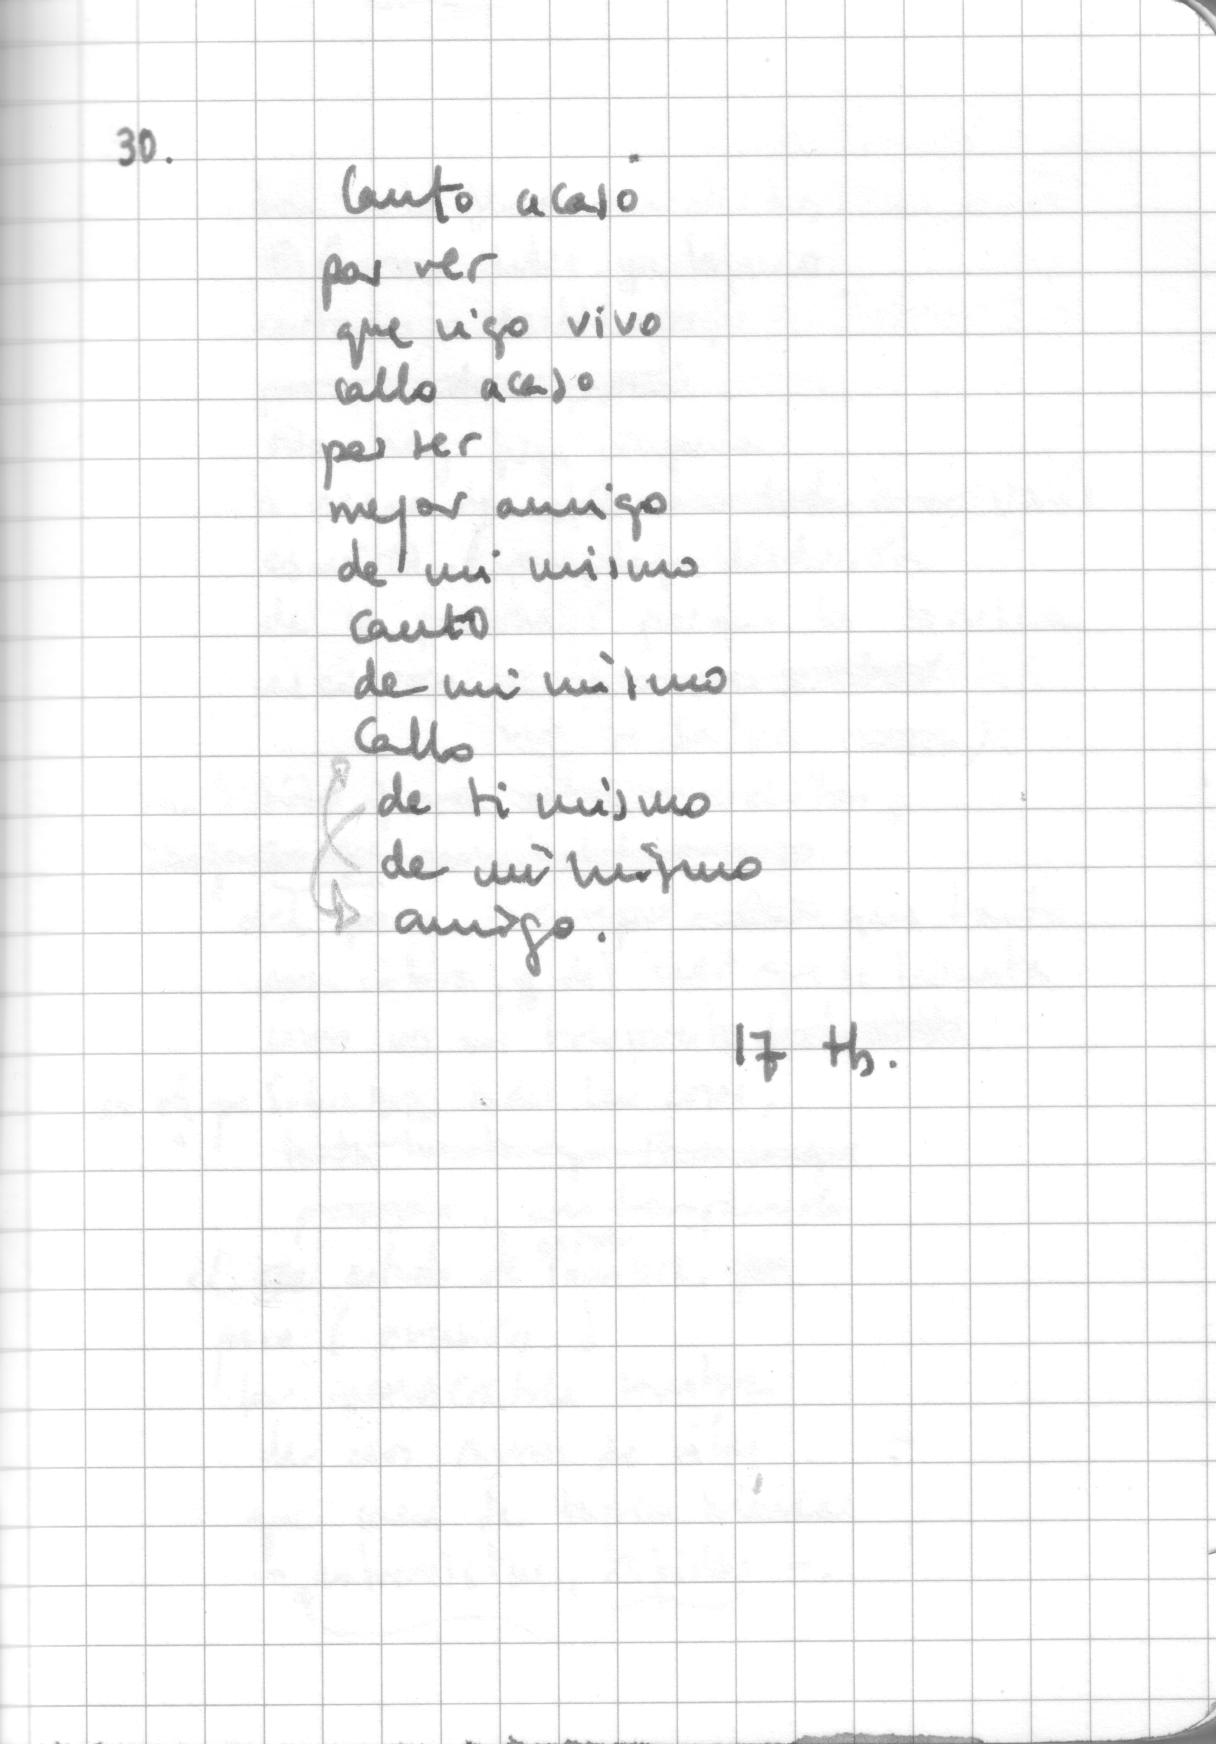 30.
Canto acaso
por ver
que sigo vivo
callo acaso
por ser
mejor amigo
de mi mismo
canto
de mi mismo
Callo
de ti mismo
de mi mismo
amigo.
17